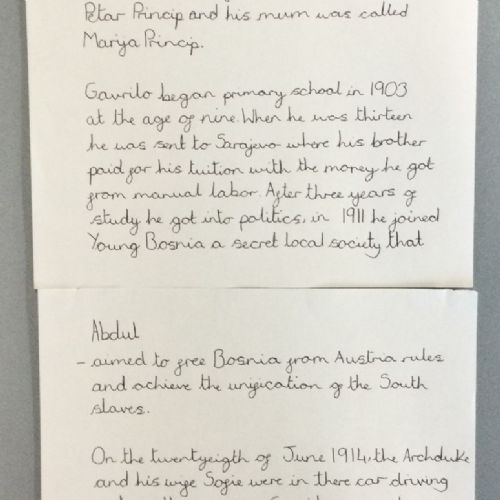 Petar Princip and his mum was called
Marija Princip.
Gavrilo began primary school in 1903
at the age of nine. When he was thirteen
he was sent to Sarajevo where his brother
paid for his tuition with the money he got
from manual labor. After three years of
study he got into politics, in 1911 he joined
Young Bosnia a secret local society that
Abdul
- aimed to free Bosnia from Austria rules
and achieve the unification of the South
slaves.
On the twentyeigth of June 1914, the Archduke
and his wife Sofie were in there car driving